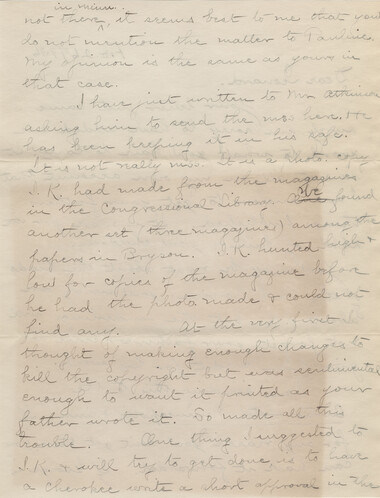 in mum.
not there, it seems best to me that you
do not mention the matter to Pauline.
My opinion is the same as yours in
that case.
I have just written to Mr. Atkinson
asking him to send the ms. here. He
has been keeping it in his safe.
It is not really ms. It is a photo. copy
I.K. had made from the magazines
in the Congressional Library. We found
another set (three magazines) among the
papers in Bryson. I.K. hunted high &
low for copies of the magazine before
he had the photo made & could not
find any. At the very first I
thought of making enough changes to
kill the copyright but was sentimental
enough to want it printed as your
father wrote it. So made all this
trouble. One thing I suggested to
I.K. & will try to get done, is to have
a Cherokee write a short approval in the